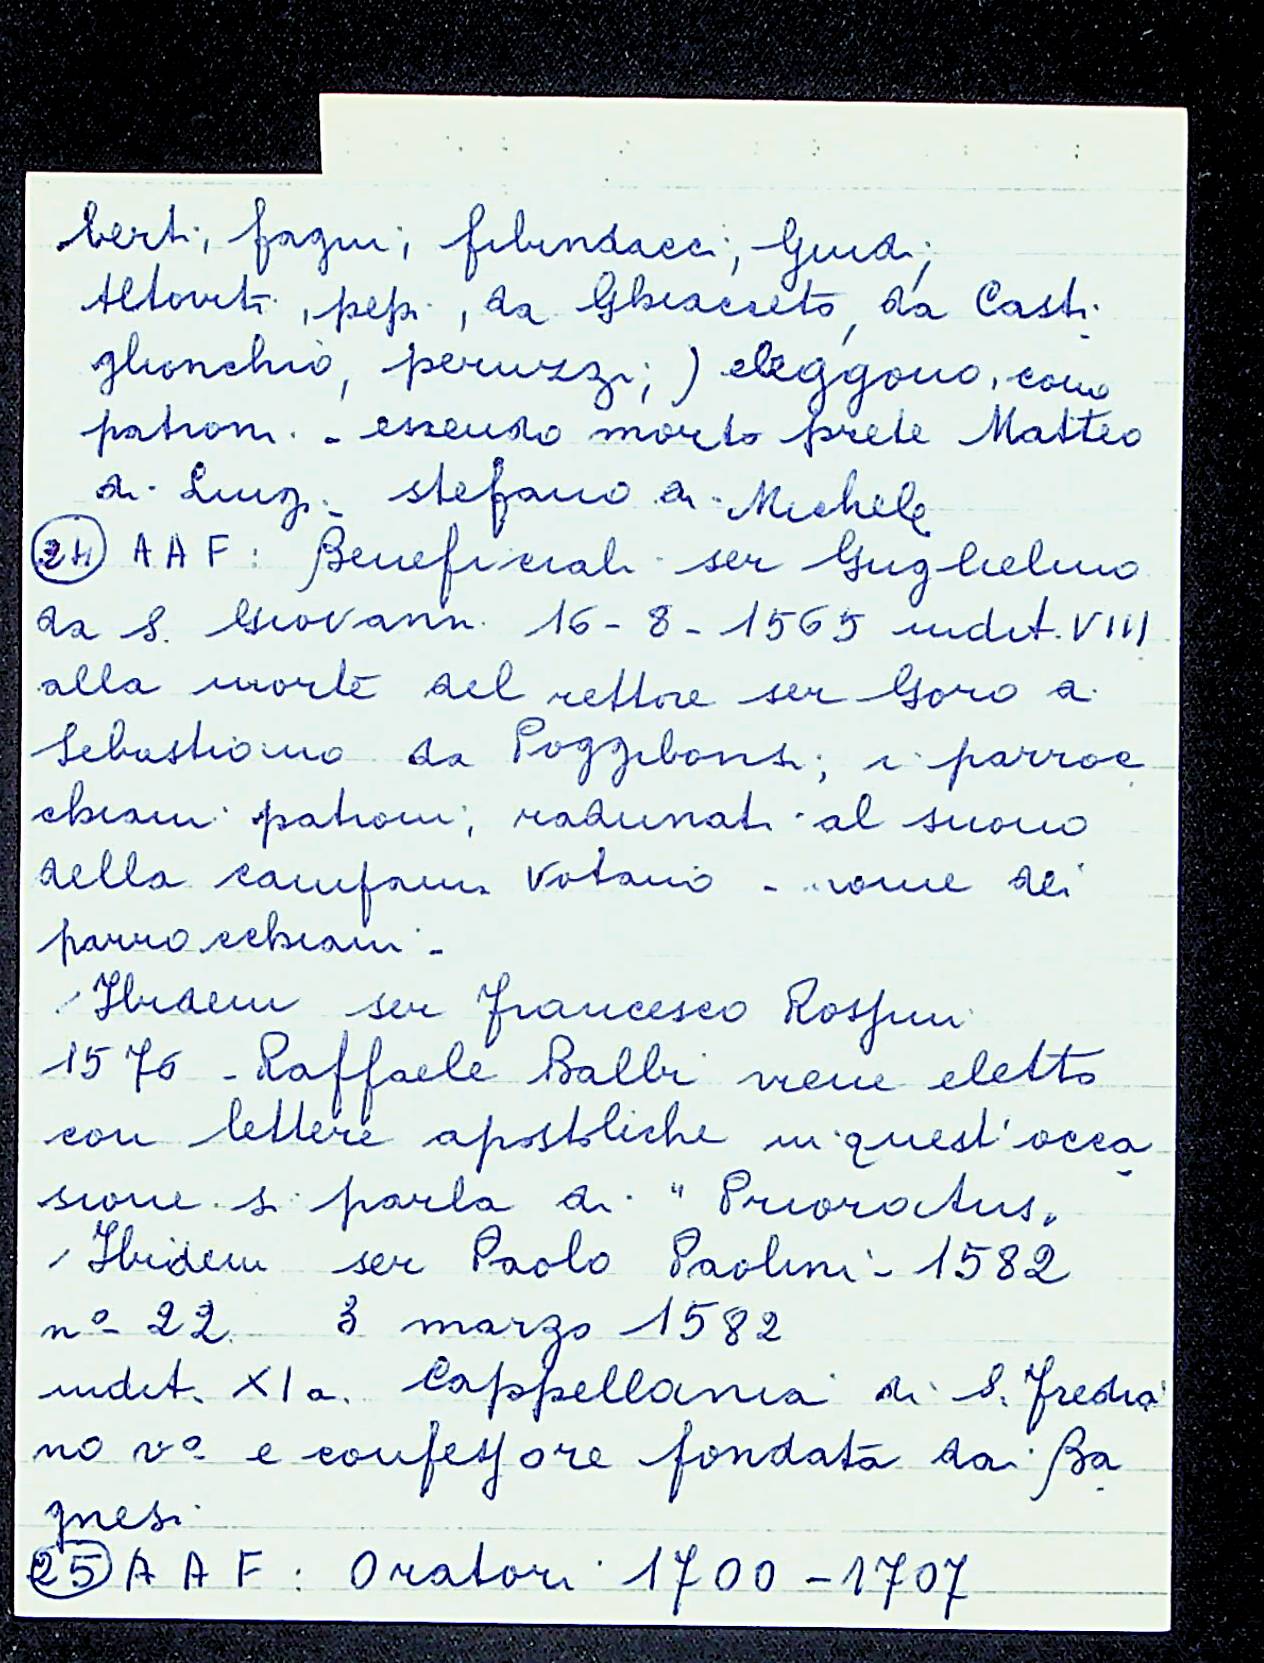 berti, fagni, filindacci, Guidi,
Altoviti, pepi, da Ghiacceto, da Casti
glionchio, peruzzi; ) eleggono, come
patroni - essendo morto prete Matteo
di Luigi - stefano di Michele
24 A A F : Beneficiali ser Guglielmo
da S. Giovanni 16 - 8 - 1565 indit. VIII
alla morte del rettore ser Goro di
Sebastiano da Poggibonsi; i parroc
chiani patroni, radunati al suono
della campana votano - nome dei
parrocchiani -
Ibidem ser Francesco Rospini
1576 - Raffaele Balbi viene eletto
con lettere apostoliche in quest'occa
sione si parla di "Prioratus"
Ibidem ser Paolo Paolini - 1582
nº 22 3 marzo 1582
indit. XIa. Cappellania di S. Fredia
no vº e confessore fondata dai Ba
gnesi
25 A A F : Oratori 1700 - 1707